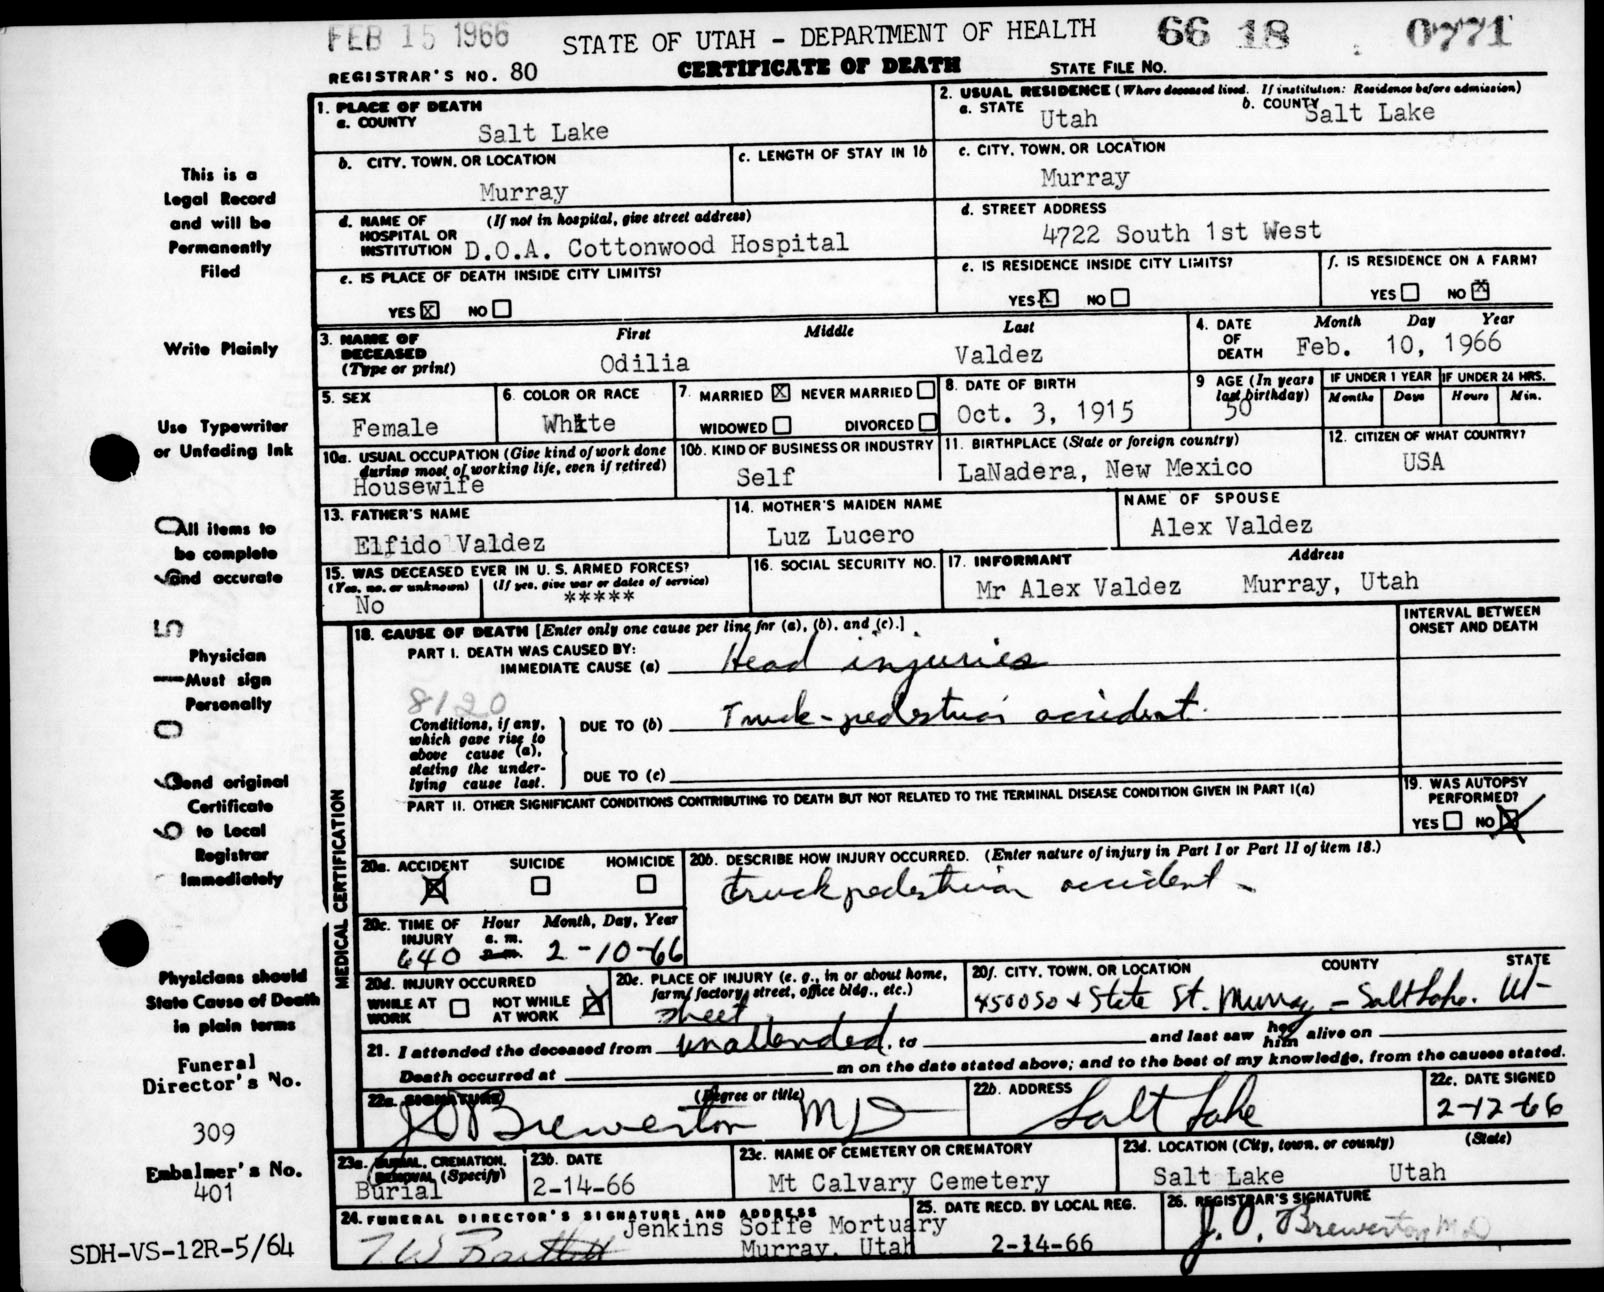 FEB 15 1966
STATE OF UTAH - DEPARTMENT OF HEALTH
66 18 0771
REGISTRAR'S NO. 80
CERTIFICATE OF DEATH
STATE FILE NO.
1. PLACE OF DEATH
a. COUNTY
Salt Lake
2. USUAL RESIDENCE (Where deceased lived. If institution: Residence before admission)
a. STATE
Utah
b. COUNTY
Salt Lake
b. CITY, TOWN, OR LOCATION
Murray
c. LENGTH OF STAY IN 1b
c. CITY, TOWN, OR LOCATION
Murray
d. NAME OF HOSPITAL OR INSTITUTION
(If not in hospital, give street address)
D.O.A. Cottonwood Hospital
d. STREET ADDRESS
4722 South 1st West
e. IS PLACE OF DEATH INSIDE CITY LIMITS?
YES X NO
e. IS RESIDENCE INSIDE CITY LIMITS?
YES X NO
f. IS RESIDENCE ON A FARM?
YES NO X
3. NAME OF DECEASED (Type or print)
First Middle Last
Odilia Valdez
4. DATE OF DEATH
Month Day Year
Feb. 10, 1966
5. SEX
Female
6. COLOR OR RACE
White
7. MARRIED X NEVER MARRIED
WIDOWED DIVORCED
8. DATE OF BIRTH
Oct. 3, 1915
9 AGE (In years last birthday)
50
IF UNDER 1 YEAR
Months Days
IF UNDER 24 HRS.
Hours Min.
10a. USUAL OCCUPATION (Give kind of work done during most of working life, even if retired)
Housewife
10b. KIND OF BUSINESS OR INDUSTRY
Self
11. BIRTHPLACE (State or foreign country)
LaNadera, New Mexico
12. CITIZEN OF WHAT COUNTRY?
USA
13. FATHER'S NAME
Elfido Valdez
14. MOTHER'S MAIDEN NAME
Luz Lucero
NAME OF SPOUSE
Alex Valdez
15. WAS DECEASED EVER IN U. S. ARMED FORCES?
(Yes, no, or unknown) (If yes, give war or dates of service)
No *****
16. SOCIAL SECURITY NO.
17. INFORMANT Address
Mr Alex Valdez Murray, Utah
MEDICAL CERTIFICATION
18. CAUSE OF DEATH [Enter only one cause per line for (a), (b), and (c).]
INTERVAL BETWEEN ONSET AND DEATH
PART I. DEATH WAS CAUSED BY:
IMMEDIATE CAUSE (a) Head injuries
8120
Conditions, if any, which gave rise to above cause (a), stating the underlying cause last.
DUE TO (b) Truck-pedestrian accident
DUE TO (c)
PART II. OTHER SIGNIFICANT CONDITIONS CONTRIBUTING TO DEATH BUT NOT RELATED TO THE TERMINAL DISEASE CONDITION GIVEN IN PART I(a)
19. WAS AUTOPSY PERFORMED?
YES NO X
20a. ACCIDENT SUICIDE HOMICIDE
X
20b. DESCRIBE HOW INJURY OCCURRED. (Enter nature of injury in Part I or Part II of item 18.)
truck pedestrian accident -
20c. TIME OF INJURY
Hour Month, Day, Year
a. m.
p. m.
640 2-10-66
20d. INJURY OCCURRED
WHILE AT WORK NOT WHILE AT WORK X
20e. PLACE OF INJURY (e. g., in or about home, farm, factory, street, office bldg., etc.)
street
20f. CITY, TOWN, OR LOCATION COUNTY STATE
4500 So & State St. Murray - Salt Lake. Ut-
21. I attended the deceased from unattended, to and last saw her him alive on
Death occurred at m on the date stated above; and to the best of my knowledge, from the causes stated.
22a. SIGNATURE (Degree or title)
J O Brewerton MD
22b. ADDRESS
Salt Lake
22c. DATE SIGNED
2-12-66
23a. BURIAL, CREMATION, REMOVAL (Specify)
Burial
23b. DATE
2-14-66
23c. NAME OF CEMETERY OR CREMATORY
Mt Calvary Cemetery
23d. LOCATION (City, town, or county) (State)
Salt Lake Utah
24. FUNERAL DIRECTOR'S SIGNATURE AND ADDRESS
Jenkins Soffe Mortuary
Murray, Utah
25. DATE RECD. BY LOCAL REG.
2-14-66
26. REGISTRAR'S SIGNATURE
J. O. Brewerton MD
This is a
Legal Record
and will be
Permanently
Filed
Write Plainly
Use Typewriter
or Unfading Ink
All items to
be complete
and accurate
Physician
Must sign
Personally
Send original
Certificate
to Local
Registrar
Immediately
Physicians should
State Cause of Death
in plain terms
Funeral
Director's No.
309
Embalmer's No.
401
SDH-VS-12R-5/64